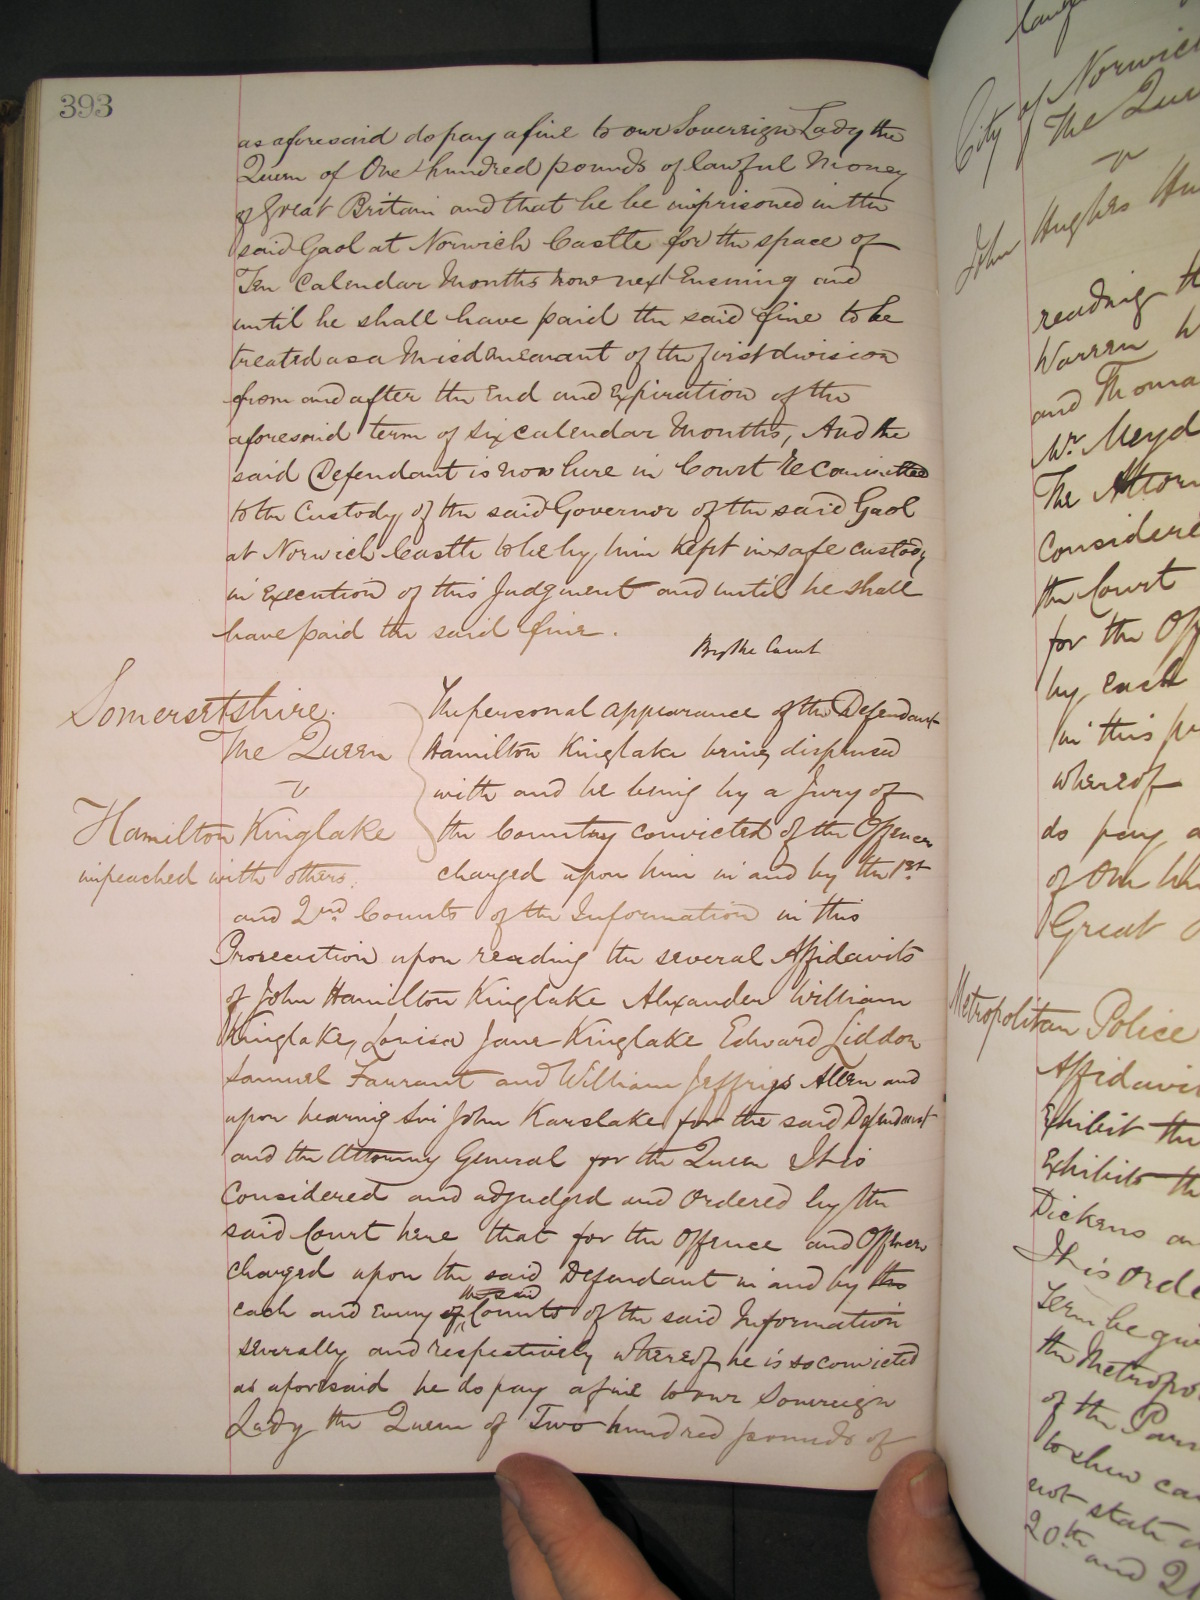 393
as aforesaid do pay a fine to our Sovereign Lady the
Queen of One hundred pounds of lawful Money
of Great Britain and that he be imprisoned in the
said Gaol at Norwich Castle for the space of
Ten Calendar Months now next Ensuing and
until he shall have paid the said fine to be
treated as a Misdemeanant of the first division
from and after the End and Expiration of the
aforesaid term of six calendar Months, And the
said Defendant is now here in Court Recommitted
to the Custody of the said Governor of the said Gaol
at Norwich Castle to be by him kept in safe custody
in Execution of this Judgment and until he shall
have paid the said fine.
By the Court
Somersetshire.
The Queen
v
Hamilton Kinglake
impeached with others.
The personal appearance of the Defendant
Hamilton Kinglake being dispensed
with and he being by a Jury of
the Country convicted of the Offences
charged upon him in and by the 1st
and 2nd Counts of the Information in this
Prosecution upon reading the several Affidavits
of John Hamilton Kinglake Alexander William
Kinglake, Louisa Jane Kinglake Edward Liddon
Samuel Farrant and William Jeffries Allen and
upon hearing Sir John Karslake for the said Defendant
and the Attorney General for the Queen It is
Considered and adjudged and Ordered by the
said Court here that for the Offence and Offences
charged upon the said Defendant in and by the
each and Every of the said Counts of the said Information
severally and respectively whereof he is so convicted
as aforesaid he do pay a fine to our Sovereign
Lady the Queen of Two hundred pounds of
City of Norwich
The Queen
v
John Hughes
reading
Warren
and Thomas
Mr
The
Considered
the Court
for the
by each
in this
whereof
do pay
of One
Great
Metropolitan Police
Exhibit the
Exhibits
Dickens
It is
Term be
the
of the
to shew
not state
20th and